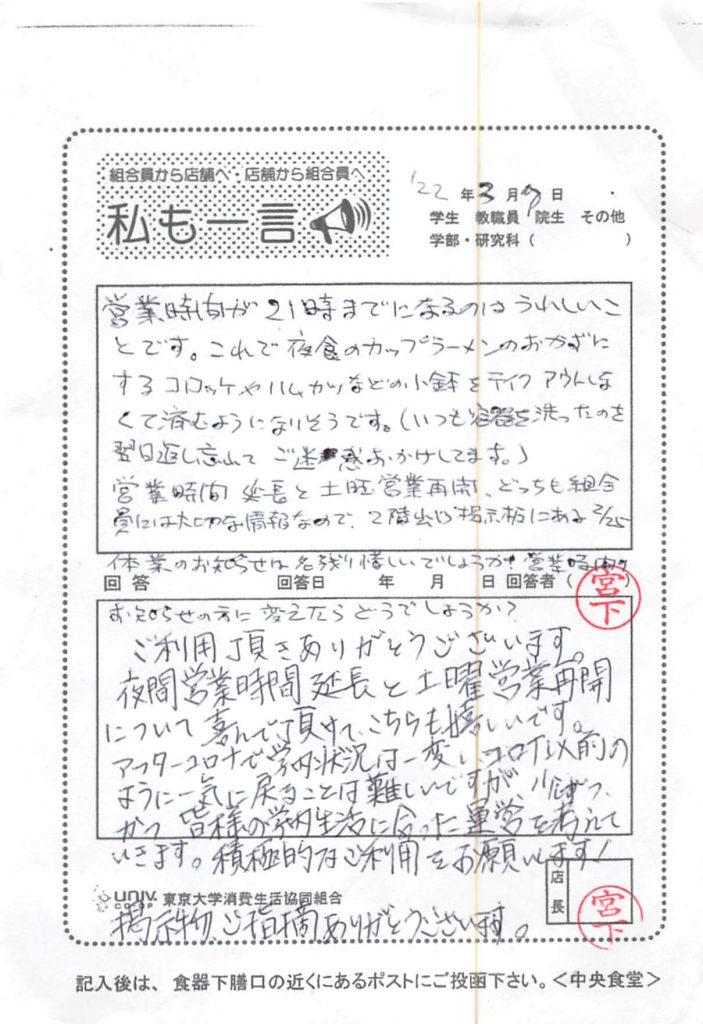 組合員から店舗へ・店舗から組合員へ
私も一言
'22 年 3 月 9 日
学生 教職員 院生 その他
学部・研究科 (          )
営業時間が21時までになるのはうれしいこ
とです。これで夜食のカップラーメンのおかずに
するコロッケやハムカツなどの小鉢をテイクアウトしな
くて済むようになりそうです。(いつも容器を洗ったのを
翌日返し忘れてご迷惑おかけしてます。)
営業時間延長と土曜営業再開、どっちも組合
員には大切な情報なので、2階出口掲示板にある2/25
休業のお知らせは名残り惜しいでしょうが、営業時間の
回答 回答日 年 月 日 回答者 ( 宮下
お知らせの方に変えたらどうでしょうか?
ご利用頂きありがとうございます。
夜間営業時間延長と土曜営業再開
について喜んで頂けて、こちらも嬉しいです。
アフターコロナで学内状況は一変し、コロナ以前の
ように一気に戻ることは難しいですが、少しずつ、
かつ皆様の学内生活に合った運営を考えて
いきます。積極的なご利用をお願いします!
UNIV. CO-OP 東京大学消費生活協同組合
店長 宮下
掲示物、ご指摘ありがとうございます。
記入後は、食器下膳口の近くにあるポストにご投函下さい。<中央食堂>